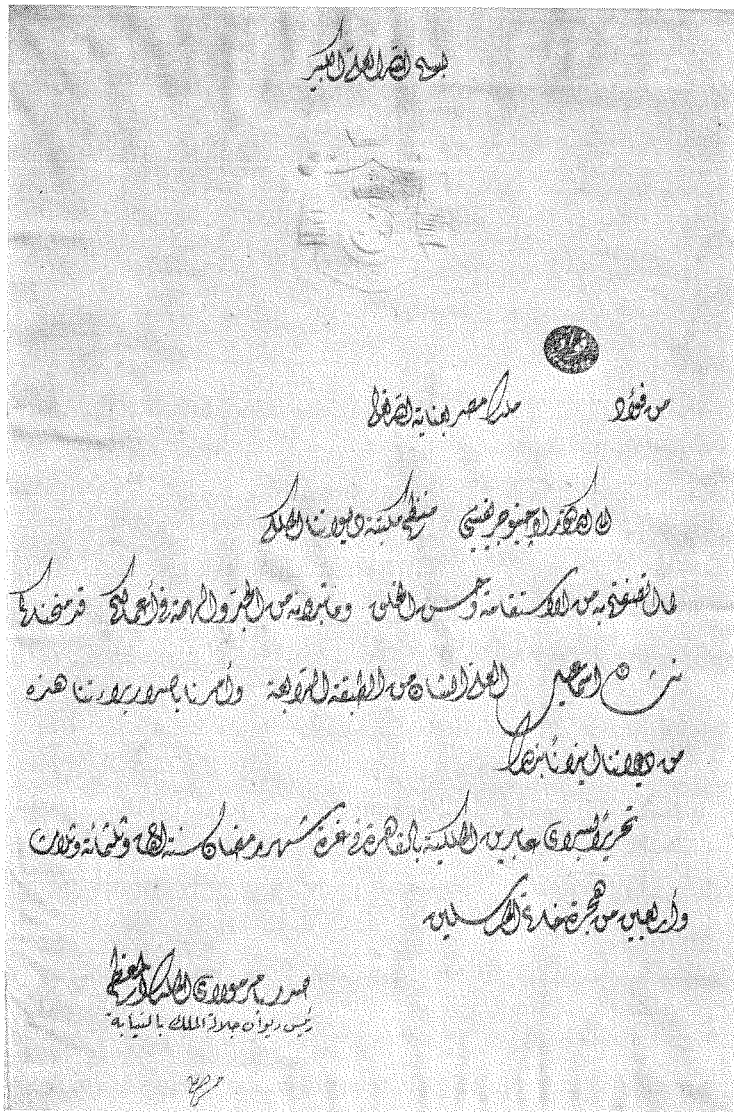 بسم الله العلي الكبير
فؤاد
من فؤاد ملك مصر بعناية الله تعالى
إلى الدكتور أوجينيو جريفيني منظم مكتبة ديواننا الملكي
لما اتصفتم به من الاستقامة وحسن الخلق وما بذلتموه من الجد والهمة في أعمالكم قد منحناكم
نشان اسماعيل العلي الشان من الطبقة الرابعة وأمرنا بإصدار براءتنا هذه
من ديواننا إيذانا بذلك
تحريرا بسراي عابدين الملكية بالقاهرة في غرة شهر رمضان سنة ألف وثلثمائة وثلاث
وأربعين من هجرة خاتم المرسلين
صدر بأمر مولاي الملك المعظم
رئيس ديوان جلالة الملك بالنيابة